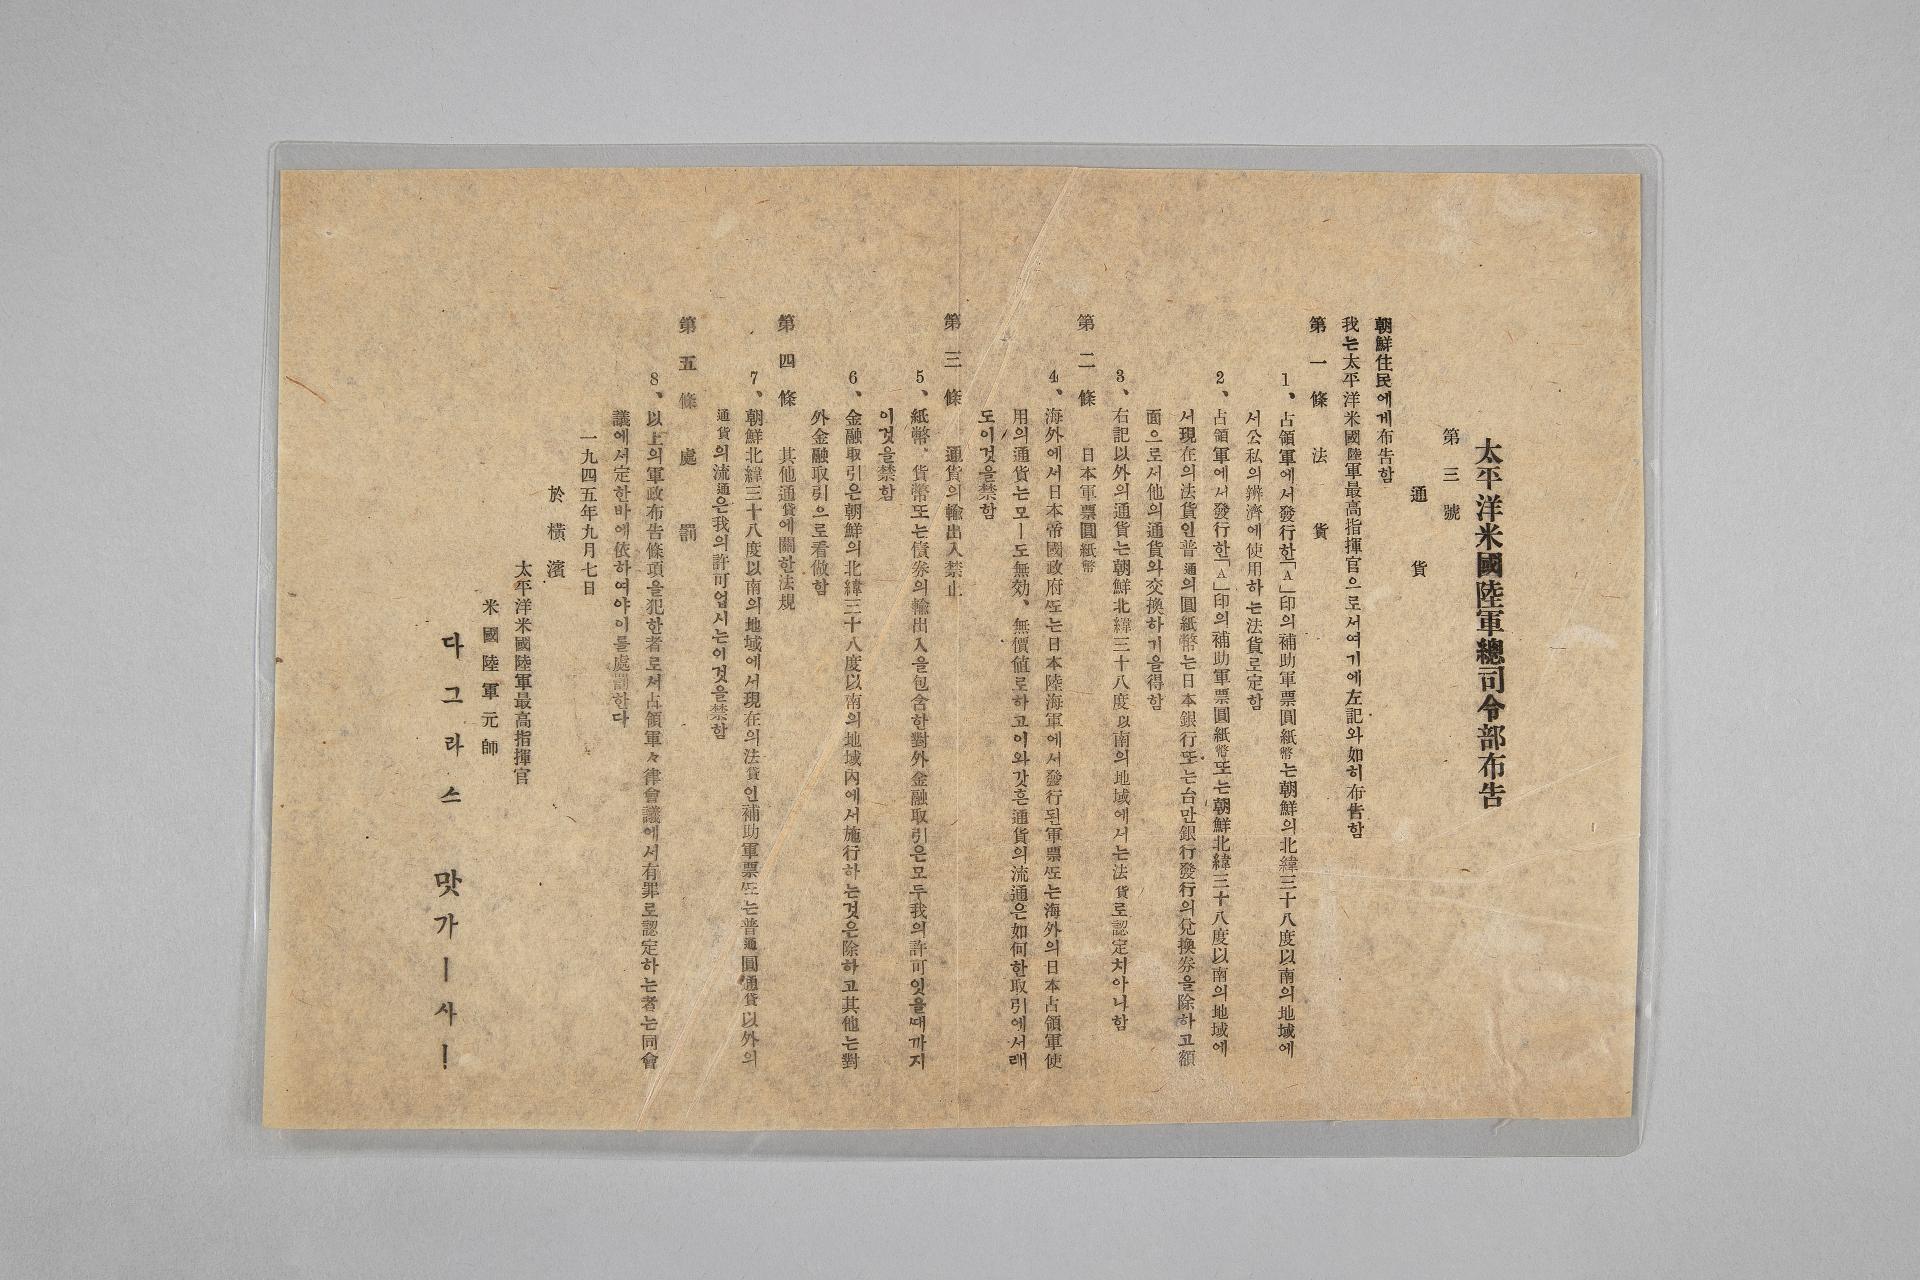 太平洋米國陸軍總司令部布告
第三號
通貨
朝鮮住民에게布告함
我는太平洋米國陸軍最高指揮官으로서여기에左記와如히布告함
第一條 法貨
1、占領軍에서發行한「A」印의補助軍票圓紙幣는朝鮮의北緯三十八度以南의地域에
서公私의辨濟에使用하는法貨로定함
2、占領軍에서發行한「A」印의補助軍票圓紙幣또는朝鮮北緯三十八度以南의地域에
서現在의法貨인普通의圓紙幣는日本銀行또는台만銀行發行의兌換券을除하고額
面으로서他의通貨와交換하기을得함
3、右記以外의通貨는朝鮮北緯三十八度以南의地域에서는法貨로認定치아니함
第二條 日本軍票圓紙幣
4、海外에서日本帝國政府또는日本陸海軍에서發行된軍票또는海外의日本占領軍使
用의通貨는모ー도無効、無價値로하고이와갓흔通貨의流通은如何한取引에서래
도이것을禁함
第三條 通貨의輸出入禁止
5、紙幣、貨幣또는債券의輸出入을包含한對外金融取引은모두我의許可잇을때까지
이것을禁함
6、金融取引은朝鮮의北緯三十八度以南의地域內에서施行하는것은除하고其他는對
外金融取引으로看做함
第四條 其他通貨에關한法規
7、朝鮮北緯三十八度以南의地域에서現在의法貨인補助軍票또는普通圓通貨以外의
通貨의流通은我의許可업시는이것을禁함
第五條 處罰
8、以上의軍政布告條項을犯한者로서占領軍々律會議에서有罪로認定하는者는同會
議에서定한바에依하여야이를處罰한다
一九四五年九月七日
於橫濱
太平洋米國陸軍最高指揮官
米國陸軍元師
다그라스 맛가ー사ー